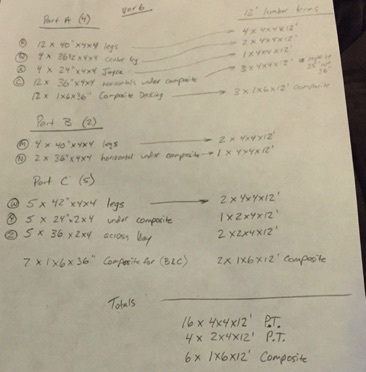 Part A (4)
12' lumber items
12 x 40" x4x4 legs → 4 x 4x4x12'
4 x 4x4 center leg → 2 x 4x4x12'
4 x 24" x4x4 → 1 x4x4x12'
12 x 36" x4x4 horizontals under composite → 3 x 4x4x12'
12 x 1x6x36" Composite Decking → 3 x 1x6x12' composite
Part B (2)
4 x 40" x4x4 legs → 2 x 4x4x12'
2 x 36" x4x4 horizontal under composite → 1 x 4x4x12'
Part C (5)
5 x 42" x4x4 legs → 2 x4x4x12'
5 x 24" x2x4 under composite 1 x2x4x12'
5 x 36 x2x4 across 2 x2x4x12'
7 x 1x6x36" Composite for (B&C) 2x 1x6x12' Composite
Totals
16 x 4x4x12' P.T.
4 x 2x4x12' P.T.
6 x 1x6x12' Composite